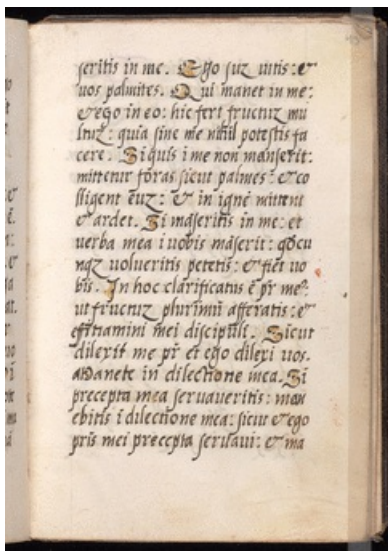 seritis in me. Ego suz vitis: &
vos palmites. Qui manet in me:
& ego in eo: hic fert fructuz mu
ltuz: quia sine me nihil potestis fa
cere. Si quis i me non manserit:
mittetur foras sicut palmes: & co
lligent euz: & in ignē mittent
& ardet. Si māseritis in me: et
verba mea i vobis māserit: qđcu
nqz volueritis petetis: & fiet vo
bis. In hoc clarificatus ē pr̄ meꝰ:
ut fructuz plurimū afferatis: &
efficiamini mei discipuli. Sicut
dilexit me pr̄ et ego dilexi vos.
Manete in dilectione mea. Si
precepta mea servaveritis: man
ebitis i dilectione mea: sicut & ego
pr̄is mei precepta servavi: & ma